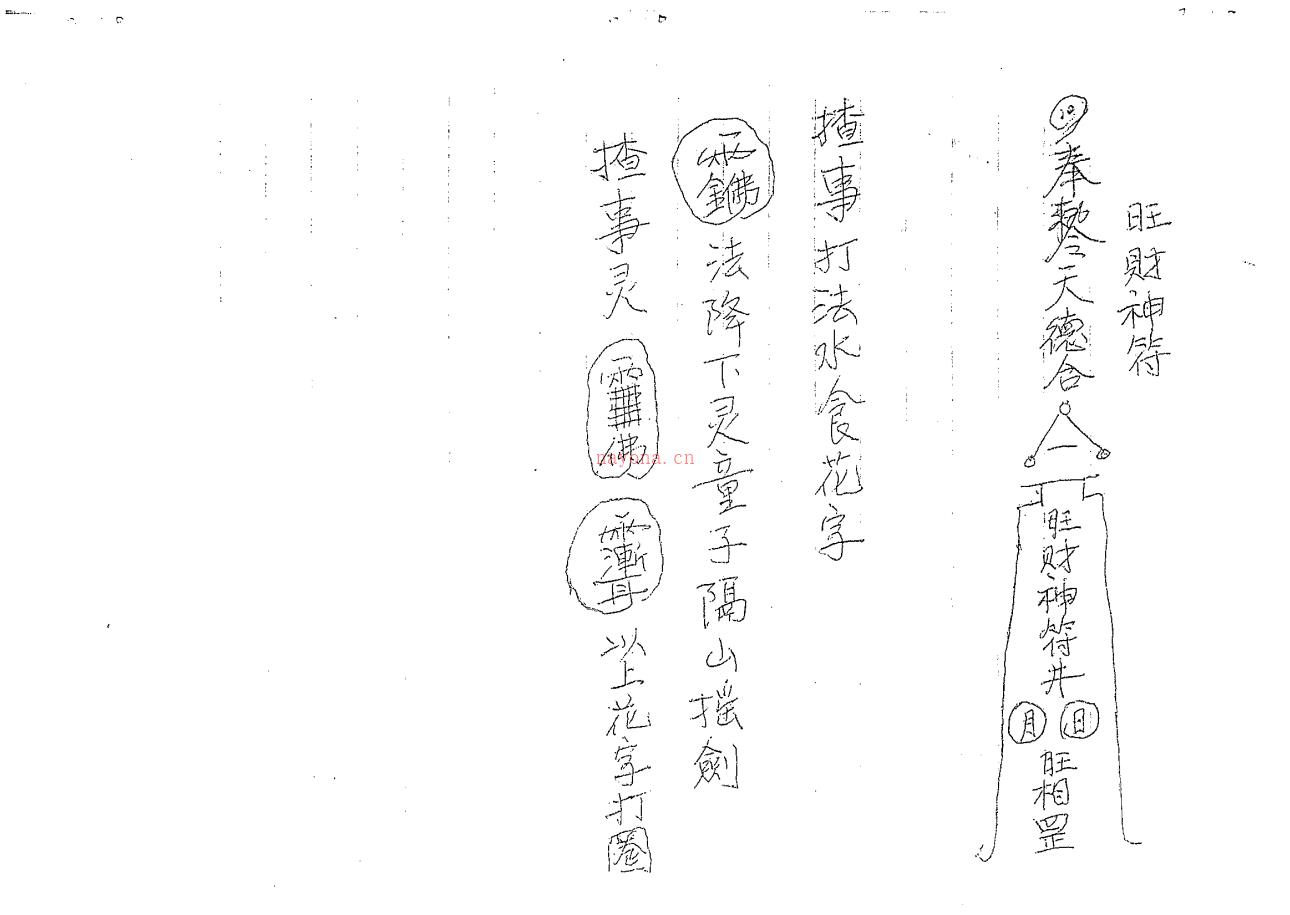 旺財神符
⑩奉
天德合
一
旺財神符井
月 日
旺相罡
揸事打法水食花字
法降下灵童子隔山摇劍
揸事灵
以上花字打圈
nayona.cn